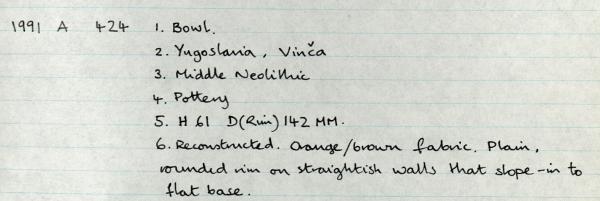 1991 A 424 1. Bowl.
2. Yugoslavia, Vinča
3. Middle Neolithic
4. Pottery
5. H 61 D(Rim) 142 MM.
6. Reconstructed. Orange/brown fabric. Plain,
rounded rim on straightish walls that slope-in to
flat base.